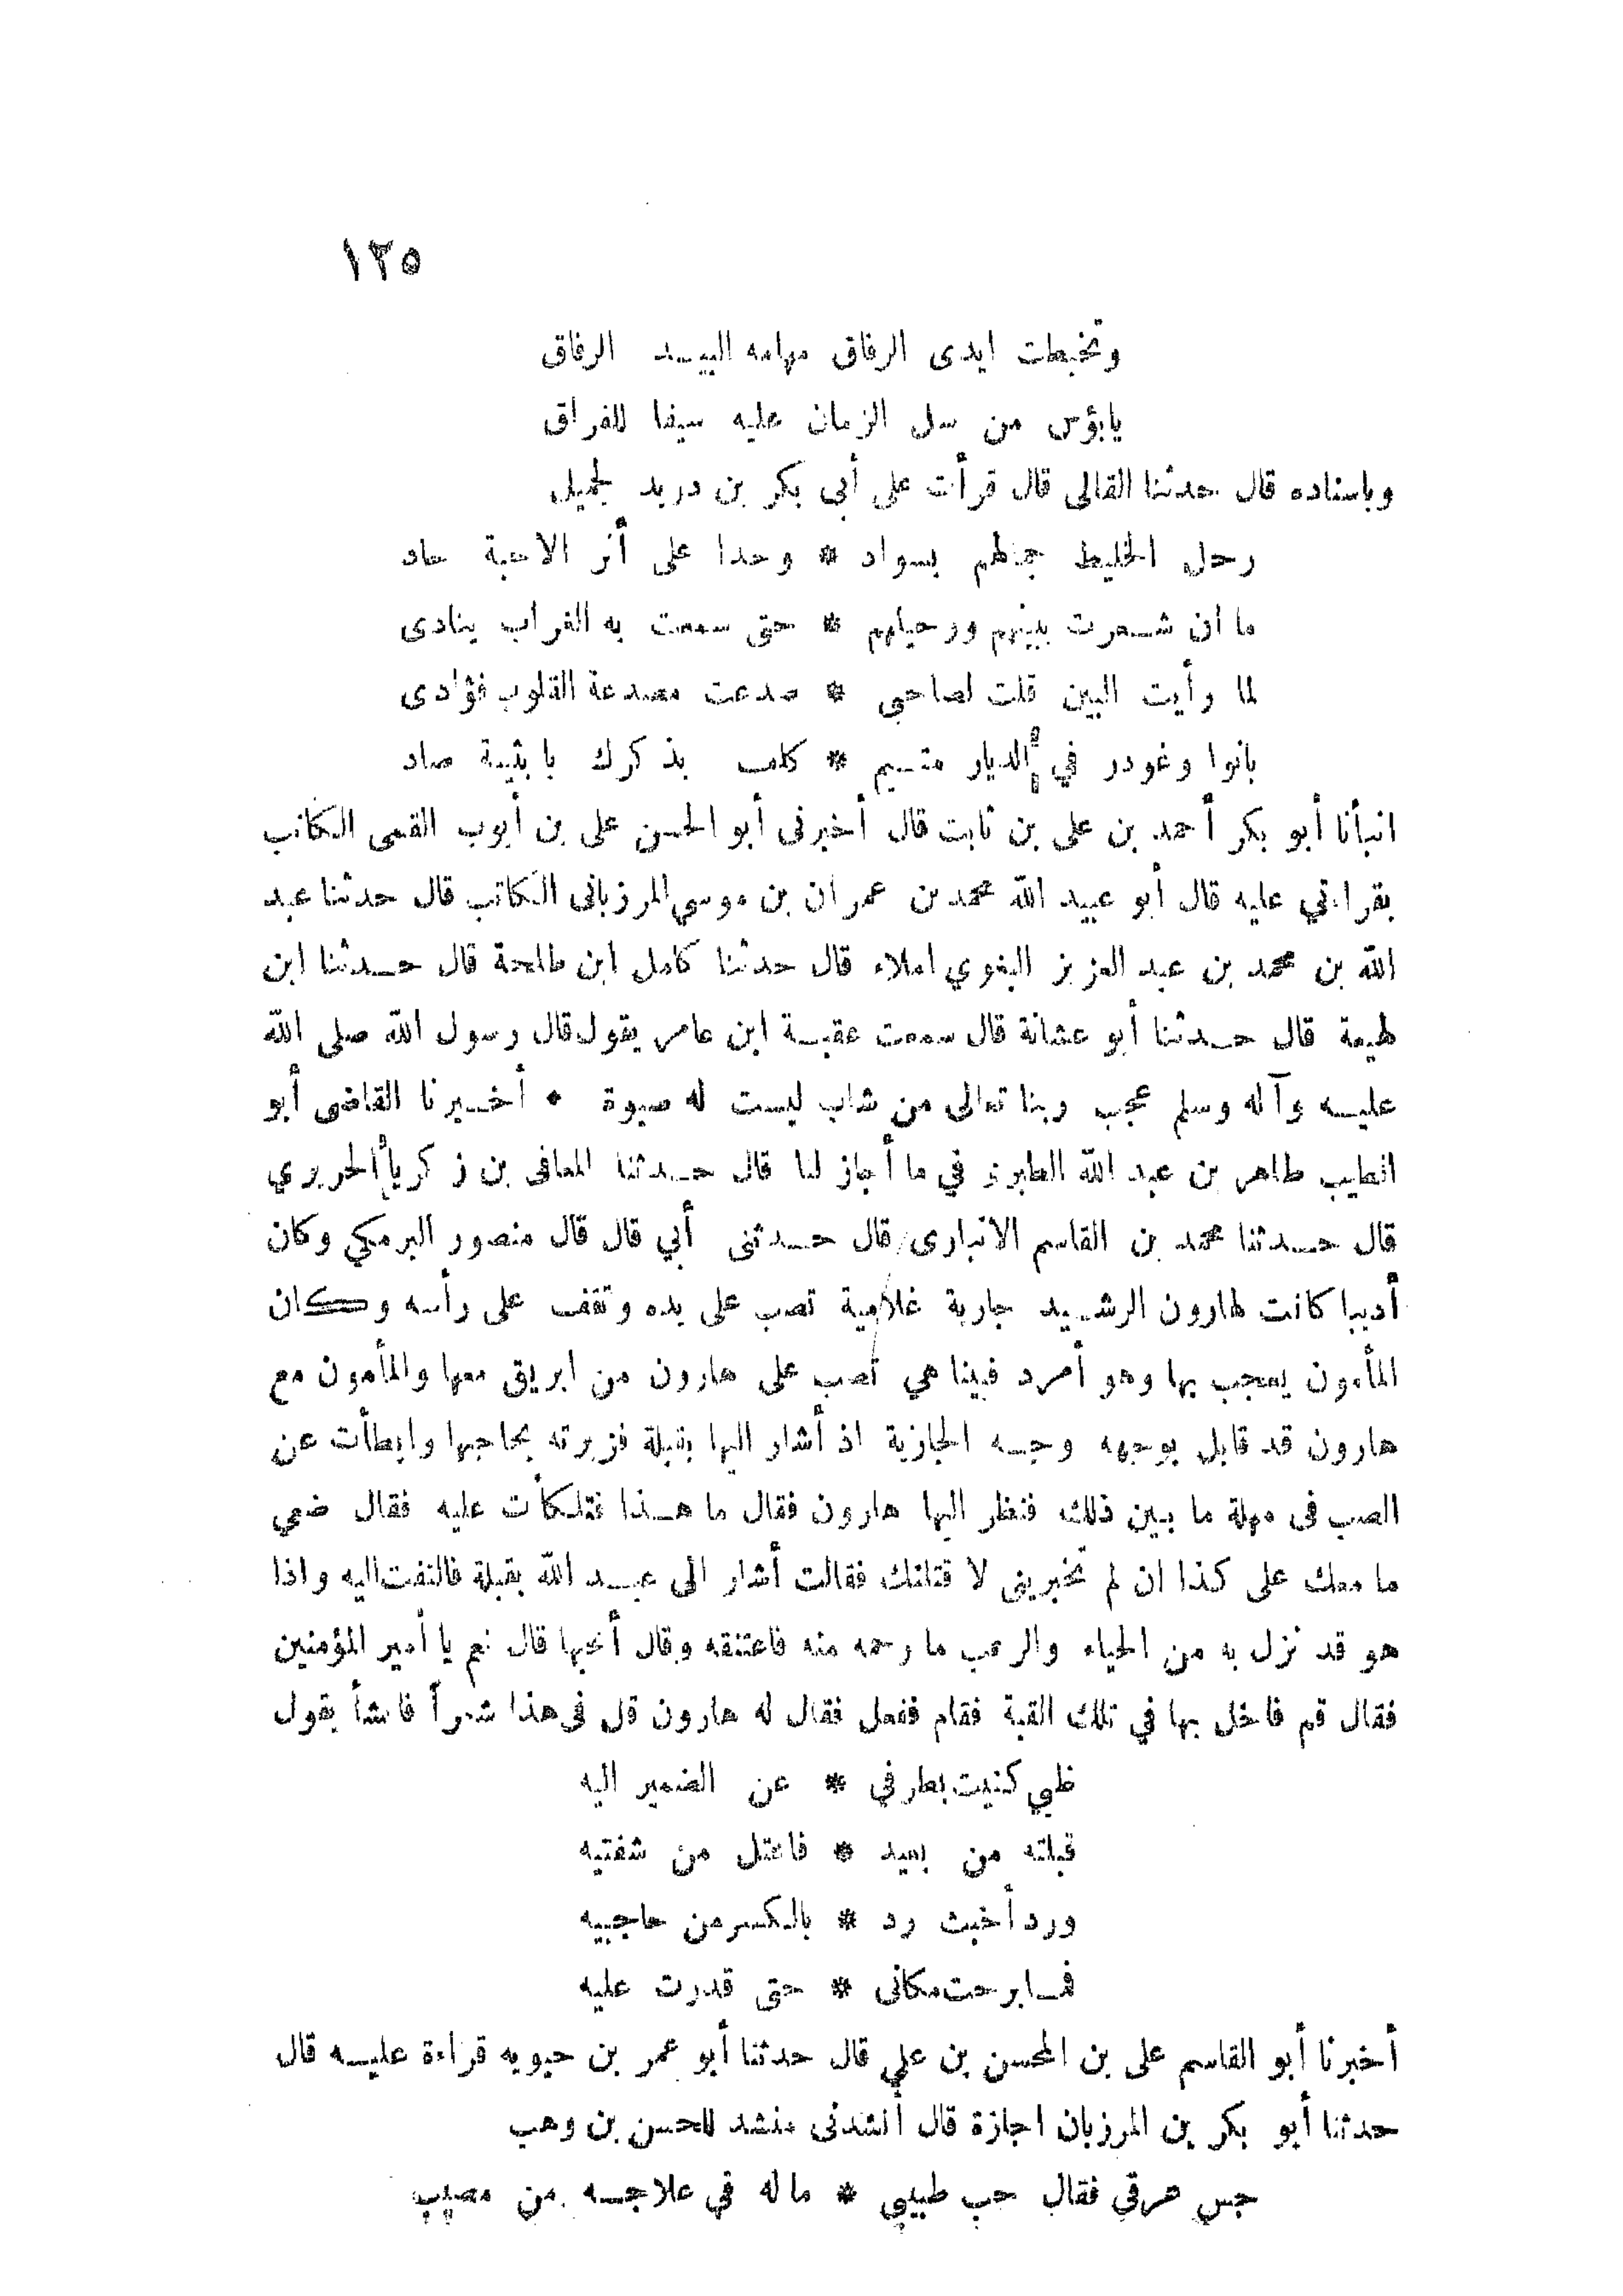 ١٢٥
وتخبطت ايدى الرفاق مهامه البيد الرفاق
يابؤس من سل الزمان عليه سيفا للفراق
وباسناده قال حدثنا القالى قال قرأت على أبى بكر بن دريد لجميل
رحل الخليط جمالهم بسواد * وحدا على أثر الاحبة حاد
ما ان شعرت ببينهم ورحيلهم * حتى سمعت به الغراب ينادى
لما رأيت البين قلت لصاحبى * صدعت مصدعة القلوب فؤادى
بانوا وغودر في الديار متيم * كلف بذكرك يا بثينة صاد
انبأنا أبو بكر أحمد بن على بن ثابت قال أخبرنى أبو الحسن على بن أيوب القمى الكاتب
بقراءتي عليه قال أبو عبيد الله محمد بن عمران بن موسي المرزبانى الكاتب قال حدثنا عبد
الله بن محمد بن عبد العزيز البغوي املاء قال حدثنا كامل ابن طلحة قال حدثنا ابن
لهيعة قال حدثنا أبو عشانة قال سمعت عقبة ابن عامر يقول قال رسول الله صلى الله
عليه وآله وسلم عجب ربنا تعالى من شاب ليست له صبوة • أخبرنا القاضى أبو
الطيب طاهر بن عبد الله الطبرى في ما أجاز لنا قال حدثنا المعافى بن زكريا الحريري
قال حدثنا محمد بن القاسم الانبارى قال حدثنى أبي قال قال منصور البرمكي وكان
أديبا كانت لهارون الرشيد جارية غلامية تصب على يده وتقف على رأسه وكان
المأمون يعجب بها وهو أمرد فبينا هي تصب على هارون من ابريق معها والمأمون مع
هارون قد قابل بوجهه وجه الجارية اذ أشار اليها بقبلة فزبرته بحاجبها وابطأت عن
الصب فى مهلة ما بين ذلك فنظر اليها هارون فقال ما هذا فتلكأت عليه فقال ضعي
ما معك على كذا ان لم تخبرينى لا قتلنك فقالت أشار الى عبد الله بقبلة فالتفت اليه واذا
هو قد نزل به من الحياء والرعب ما رحمه منه فاعتنقه وقال أتحبها قال نعم يا أمير المؤمنين
فقال قم فاخل بها في تلك القبة فقام ففعل فقال له هارون قل فى هذا شعراً فانشأ يقول
ظبي كنيت بطرفي * عن الضمير اليه
قبلته من بعيد * فاعتل من شفتيه
ورد أخبث رد * بالكسر من حاجبيه
فما برحت مكانى * حتى قدرت عليه
أخبرنا أبو القاسم على بن المحسن بن علي قال حدثنا أبو عمر بن حيويه قراءة عليه قال
حدثنا أبو بكر بن المرزبان اجازة قال أنشدنى منشد للحسن بن وهب
جس عرقي فقال حب طبيبي * ماله في علاجه من مصيب